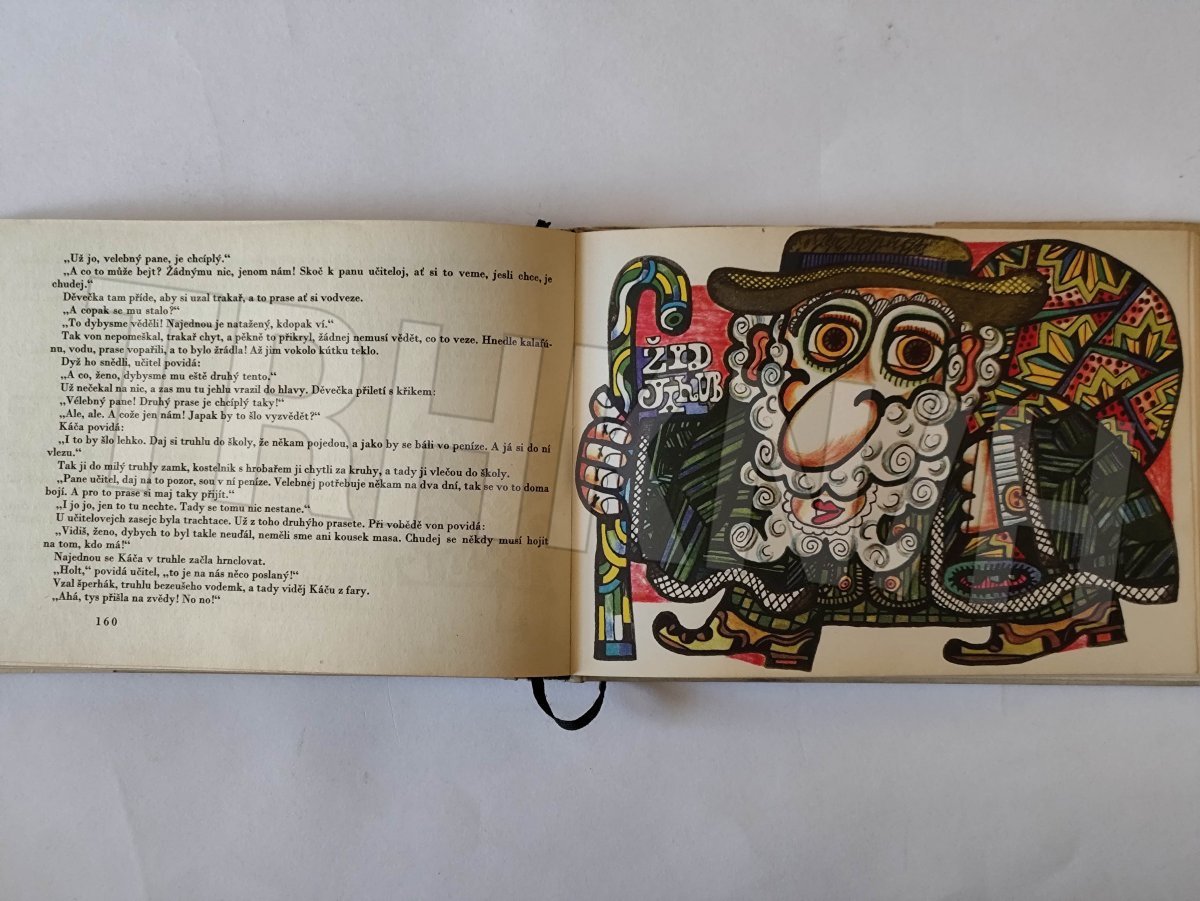 „Už jo, velebný pane, je chcíplý.“
„A co to může bejt? Žádnýmu nic, jenom nám! Skoč k panu učiteloj, ať si to veme, jesli chce, je
chudej.“
Děvečka tam příde, aby si uzal trakař, a to prase ať si vodveze.
„A copak se mu stalo?“
„To dybysme věděli! Najednou je natažený, kdopak ví.“
Tak von nepomeškal, trakař chyt, a pěkně to přikryl, žádnej nemusí vědět, co to veze. Hnedle kalafú-
nu, vodu, prase vopařili, a to bylo žrádla! Až jim vokolo kútku teklo.
Dyž ho snědli, učitel povidá:
„A co, ženo, dybysme mu eště druhý tento,“
Už nečekal na nic, a zas mu tu jehlu vrazil do hlavy. Děvečka přiletí s křikem:
„Vélebný pane! Druhý prase je chcíplý taky!“
„Ale, ale. A cože jen nám! Japak by to šlo vyzvědět?“
Káča povidá:
„I to by šlo lehko. Daj si truhlu do školy, že někam pojedou, a jako by se báli vo peníze. A já si do ní
vlezu.“
Tak ji do milý truhly zamk, kostelnik s hrobařem ji chytli za kruhy, a tady ji vlečou do školy.
„Pane učitel, daj na to pozor, sou v ní peníze. Velebnej potřebuje někam na dva dní, tak se vo to doma
bojí. A pro to prase si maj taky přijít.“
„I jo jo, jen to tu nechte. Tady se tomu nic nestane.“
U učitelovejch zasejc byla trachtace. Už z toho druhýho prasete. Při vobědě von povidá:
„Vidiš, ženo, dybych to byl takle neuďál, neměli sme ani kousek masa. Chudej se někdy musí hojit
na tom, kdo má!“
Najednou se Káča v truhle začla hrnclovat.
„Holt,“ povidá učitel, „to je na nás něco poslaný!“
Vzal šperhák, truhlu bezeušeho vodemk, a tady viděj Káču z fary.
„Ahá, tys přišla na zvědy! No no!“
160
ŽID
JAKUB